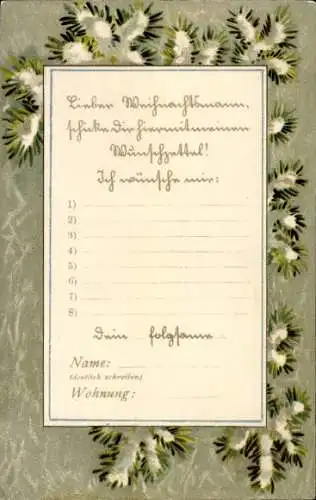 Lieber Weihnachtsmann,
schicke Dir hiermit meinen
Wunschzettel!
Ich wünsche mir:
1)
2)
3)
4)
5)
6)
7)
8)
Dein folgsame
Name:
(deutlich schreiben)
Wohnung: